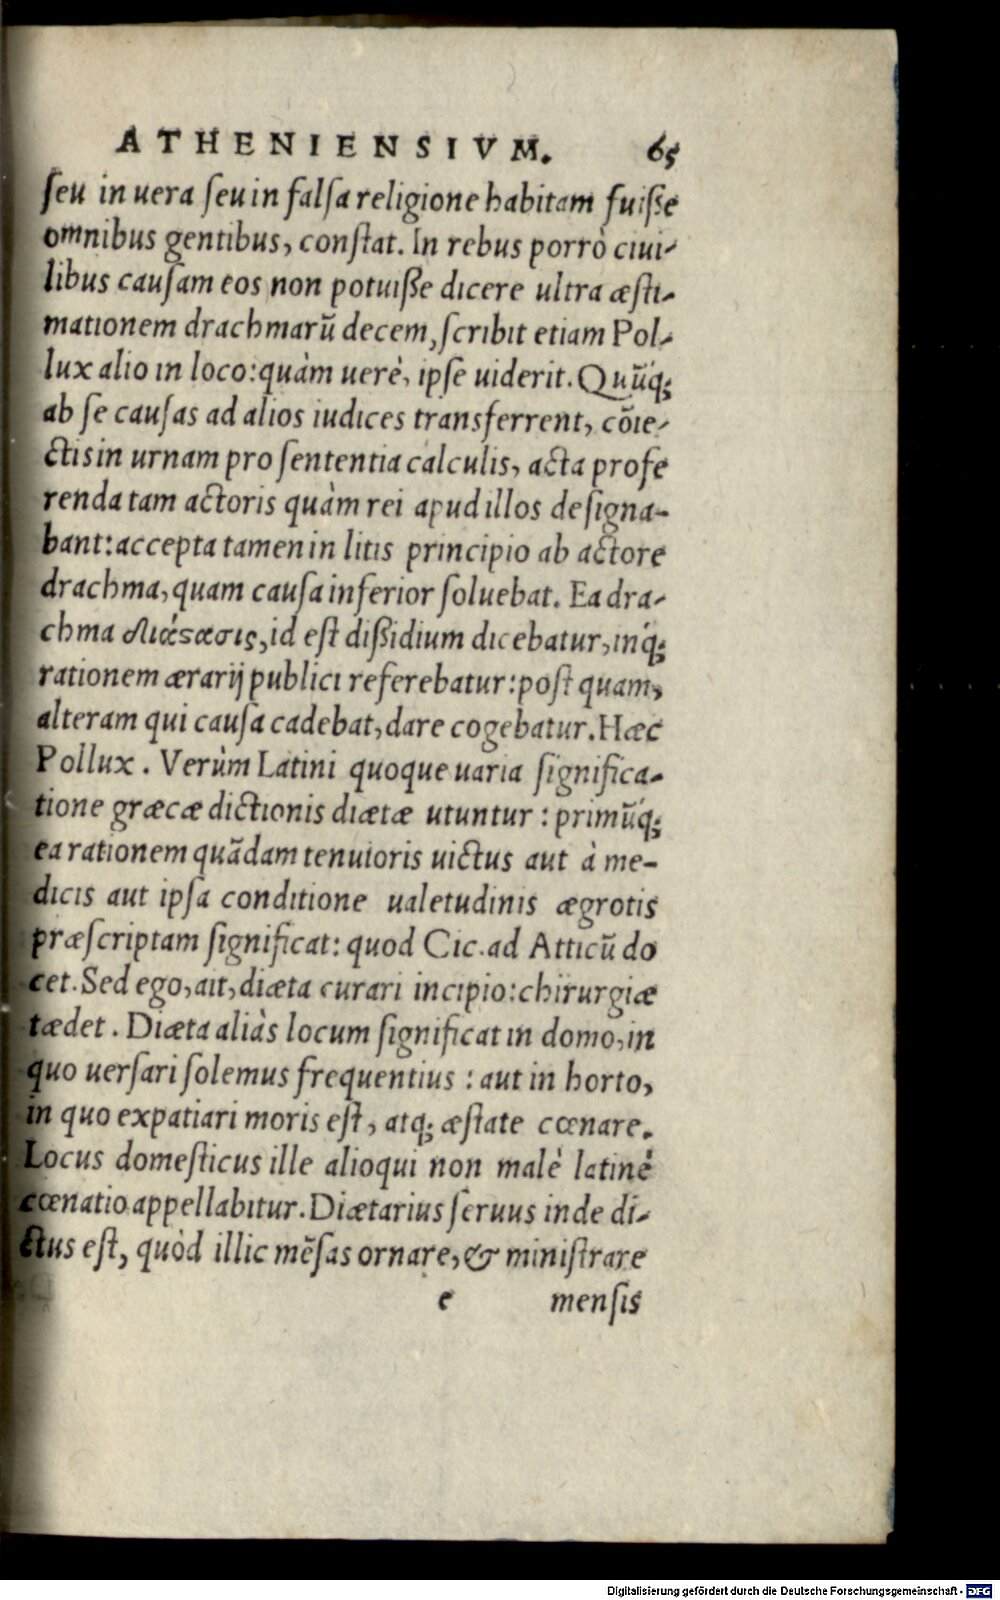 ATHENIENSIVM. 65
ſeu in uera ſeu in falſa religione habitam fuiſſe
omnibus gentibus, conſtat. In rebus porrò ciui-
libus cauſam eos non potuiſſe dicere ultra æſti-
mationem drachmarū decem, ſcribit etiam Pol-
lux alio in loco: quàm uerè, ipſe uiderit. Quū́q;
ab ſe cauſas ad alios iudices transferrent, cōie-
ctis in urnam pro ſententia calculis, acta profe
renda tam actoris quàm rei apud illos deſigna-
bant: accepta tamen in litis principio ab actore
drachma, quam cauſa inferior ſoluebat. Ea dra-
chma διάςασις, id eſt diſſidium dicebatur, inq́;
rationem ærarij publici referebatur: poſt quam,
alteram qui cauſa cadebat, dare cogebatur. Hæc
Pollux. Verùm Latini quoque uaria ſignifica-
tione græcæ dictionis diætæ utuntur: primū́q;
ea rationem quādam tenuioris uictus aut à me-
dicis aut ipſa conditione ualetudinis ægrotis
præſcriptam ſignificat: quod Cic. ad Atticū do
cet. Sed ego, ait, diæta curari incipio: chirurgiæ
tædet. Diæta aliàs locum ſignificat in domo, in
quo uerſari ſolemus frequentius: aut in horto,
in quo expatiari moris eſt, atq; æſtate cœnare.
Locus domeſticus ille alioqui non malè latinè
cœnatio appellabitur. Diætarius ſeruus inde di-
ctus eſt, quòd illic mēſas ornare, & miniſtrare
e mensis
Digitalisierung gefördert durch die Deutsche Forschungsgemeinschaft - DFG